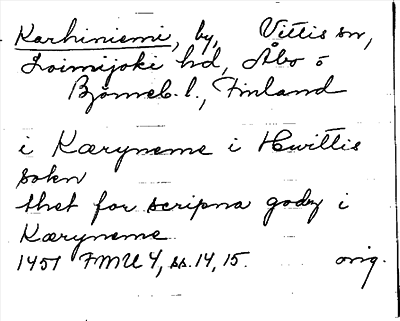 Karhiniemi, by, Vittis sn,
Loimijoki hd, Åbo o
Björneb. l., Finland
i Kæryneme i Hwittis
sokn
thet for scripna godz i
Kæryneme
1451 FMU 4, ss. 14, 15. orig.